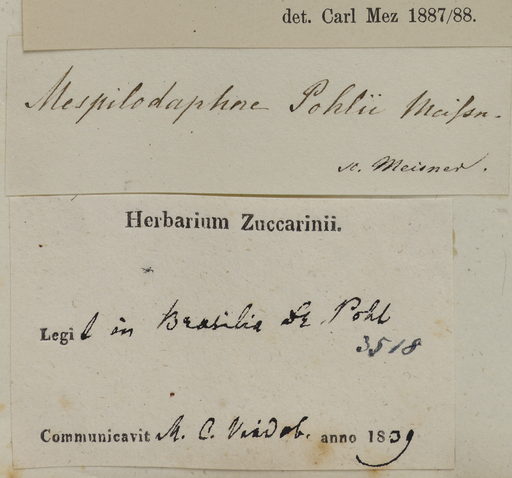 det. Carl Mez 1887/88.
Mespilodaphne Pohlii Meißn.
sc. Meisner.
Herbarium Zuccarinii.
Legit in Brasilia Dr. Pohl
3518
Communicavit M. C. Vindob. anno 1839